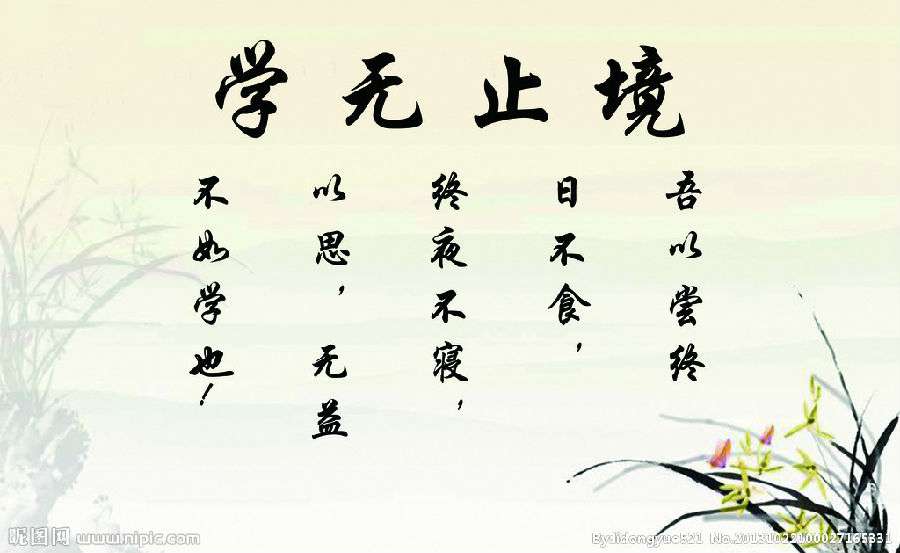 学无止境
吾以尝终
日不食，
终夜不寝，
以思，无益
不如学也！
昵图网 www.nipic.com
By:lidongyue521 No.20131022100027165331